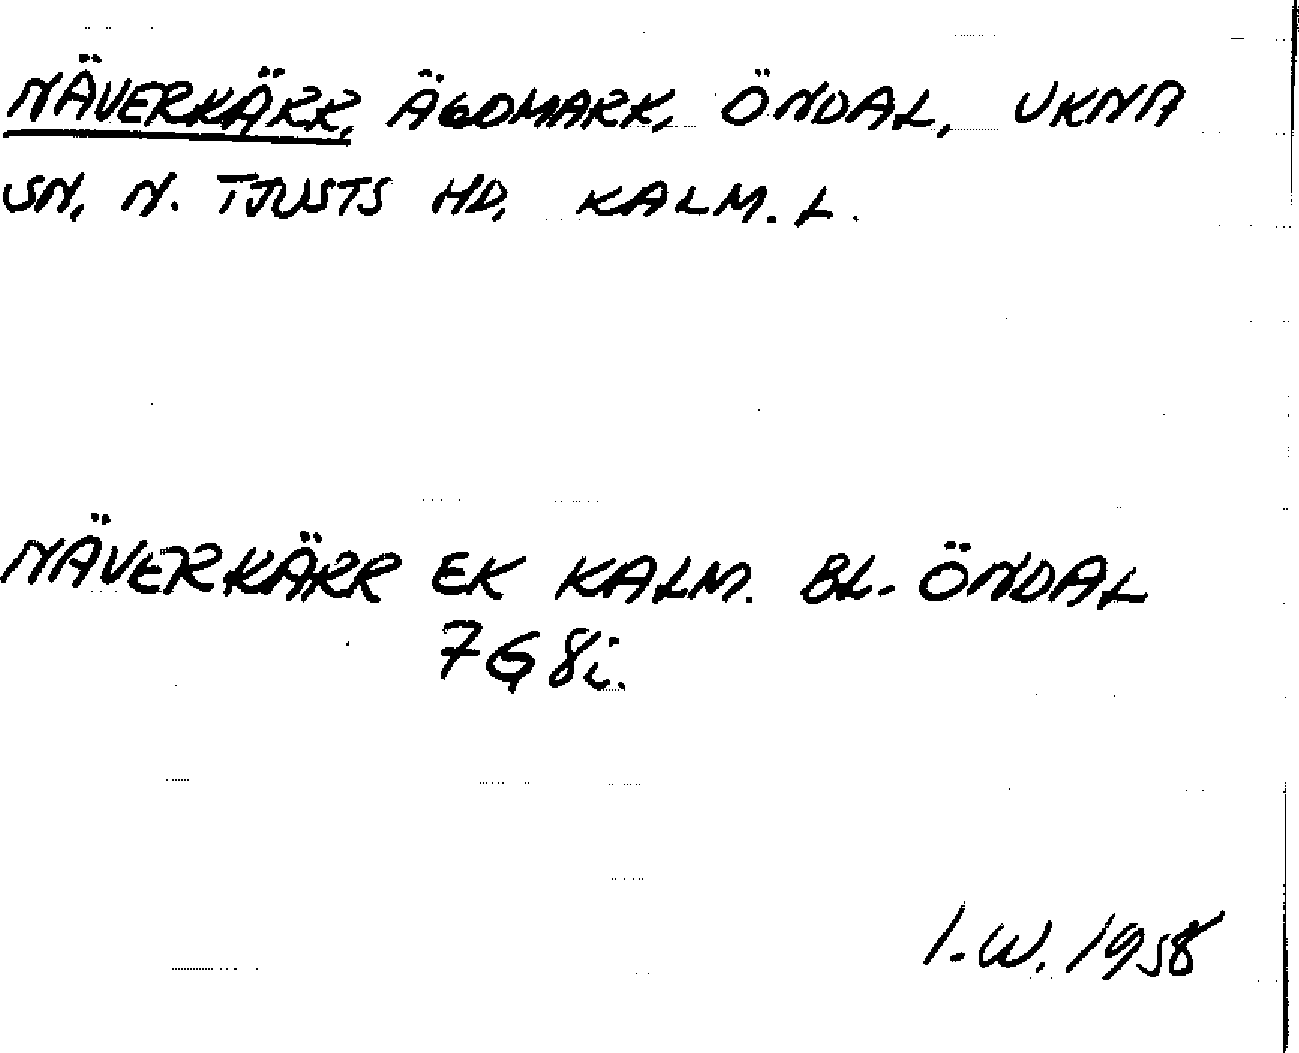 NÄVERKÄRR, ÄGOMARK, ÖNDAL, UKNA
SN, N. TJUSTS HD, KALM. L.
NÄVERKÄRR EK KALM. BL. ÖNDAL
7G 8i.
I.W. 1958